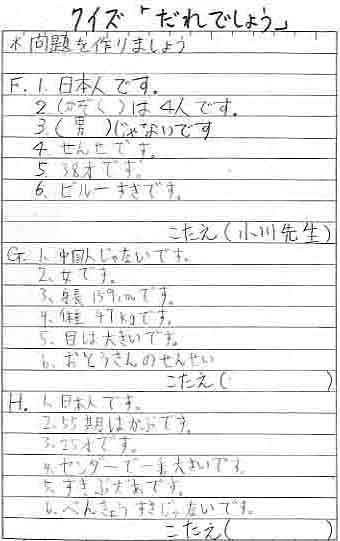 クイズ「だれでしょう」
* 問題を作りましょう
F. 1. 日本人です。
2. (かぞく)は4人です。
3. (男)じゃないです
4. せんせです。
5. 38才です。
6. ビルーすきです。
こたえ(小川先生)
G. 1. 中国人じゃないです。
2. 女です。
3. 身長159cmです。
4. 体重47kgです。
5. 目は大きいです。
6. おとうさんのせんせい
こたえ( )
H. 1. 日本人です。
2. 55期はかぶです。
3. 25才です。
4. センダーで一番大きいです。
5. すきぶズあです。
6. べんきょうすきじゃないです。
こたえ( )